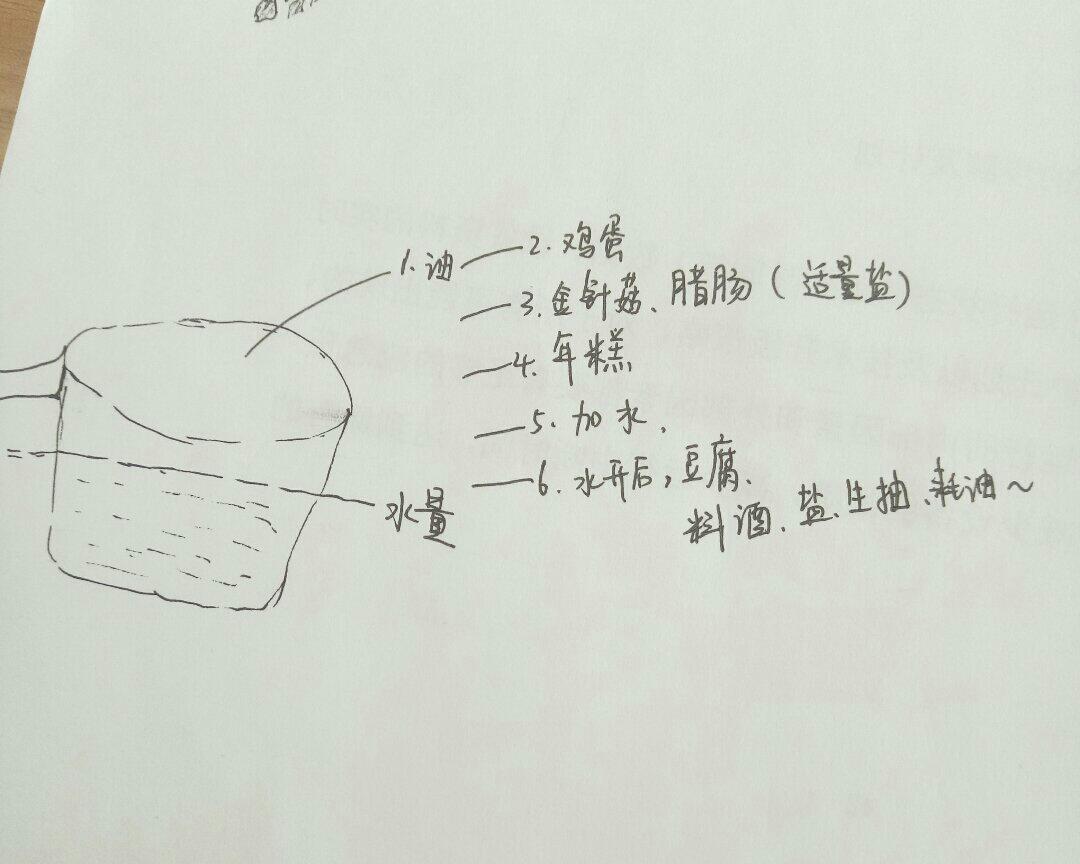 1. 油
2. 鸡蛋
3. 金针菇、腊肠(适量盐)
4. 年糕
5. 加水.
6. 水开后,豆腐、
料酒、盐、生抽、耗油~
水量